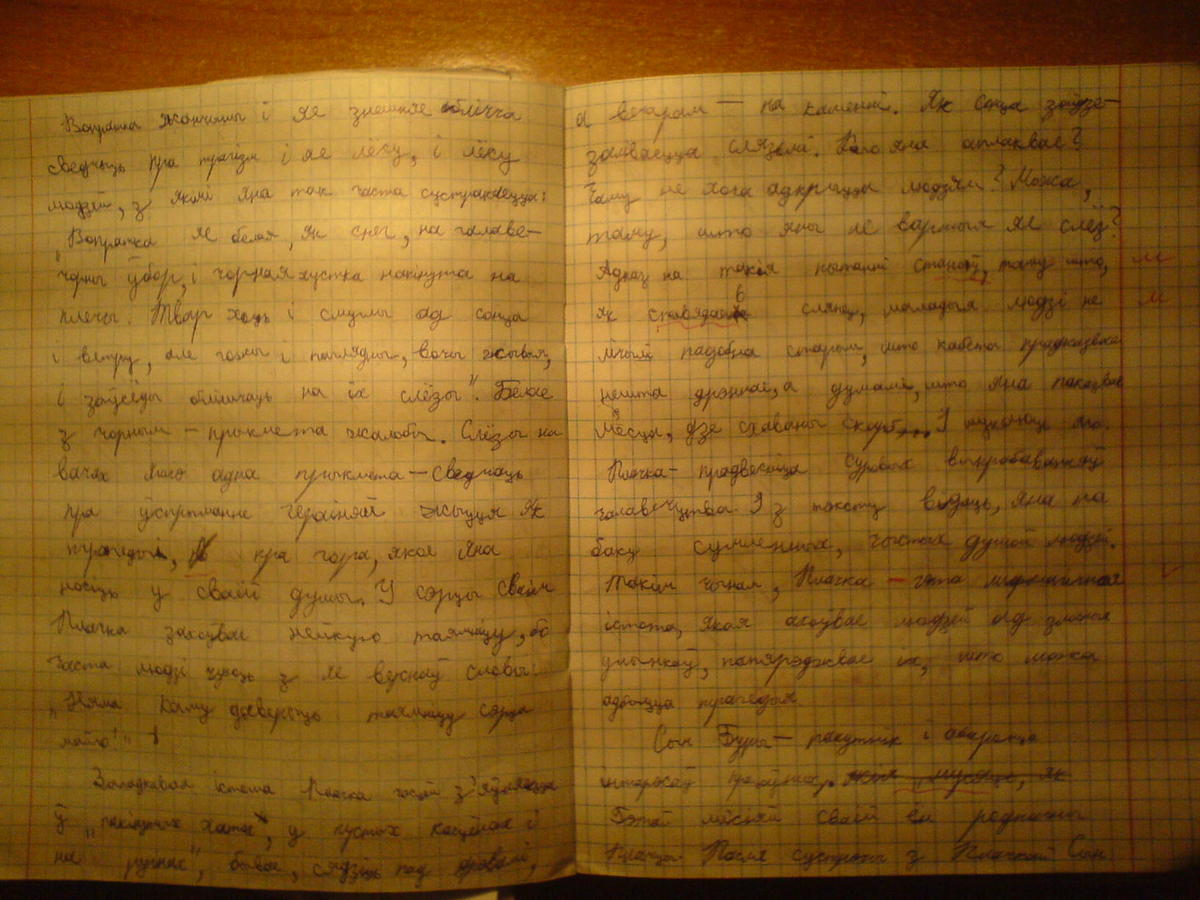 Вопратка жанчыны і яе знешняе аблічча
сведчыць пра трагізм і яе лёсу, і лёсу
людзей, з якімі яна так часта сустракаецца:
„Вопратка яе белая, як снег, на галаве –
чорны ўбор, і чорная хустка накінута на
плечы. Твар хоць і смуглы ад сонца
і ветру, але гожы і паглядны, вочы жывыя,
і заўсёды бліщчаць на іх слёзы". Белае
з чорным – прыкмета жалобы. Слёзы на
вачах яшчэ адна прыкмета – сведчаць
пра ўспрыманне гераіняй жыцця як
трагедыі, пра гора, якое яна
носіць у сваёй душы. У сэрцы сваім
Плачка захоўвае нейкую таямніцу, бо
часта людзі чуюць з яе вуснаў словы:
„Няма каму даверыць таямніцу сэрца
майго!"
Загадкавая істота Плачка часцей з'яўляецца
ў „пакінутых хатах, у пустых касцёлах і
на руінах", бывае, сядзіць пад дрэвамі,
а вечарам – на каменні. Як сонца зойдзе –
заліваецца слязьмі. Каго яна аплаквае?
Чаму не хоча адкрыцца людзям? Можа,
таму, што яны не вартыя яе слёз?
Адказ на такія пытанні станоў, таму што,
як спавядаў сляпец, маладыя людзі не
лічылі падобна старым, што кабета прадказвае
нешта дрэннае, а думалі, што яна паказвае
месцы, дзе схаваны скарб... І шукаюць яго.
Плачка – прадвесніца суровых выпрабаванняў
чалавецтва. І з тэксту відаць, яна на
баку сумленных, чыстых душой людзей.
Такім чынам, Плачка – гэта міфалагічная
істота, якая ахоўвае людзей ад злачных
учынкаў, папярэджвае іх, што можа
адбыцца трагедыя.
Сын Буры – пакутнік і абаронца
інтарэсаў
Гэтай місіяй сваёй ён роднасны
Плачцы. Пасля сустрэчы з Плачкай Сын